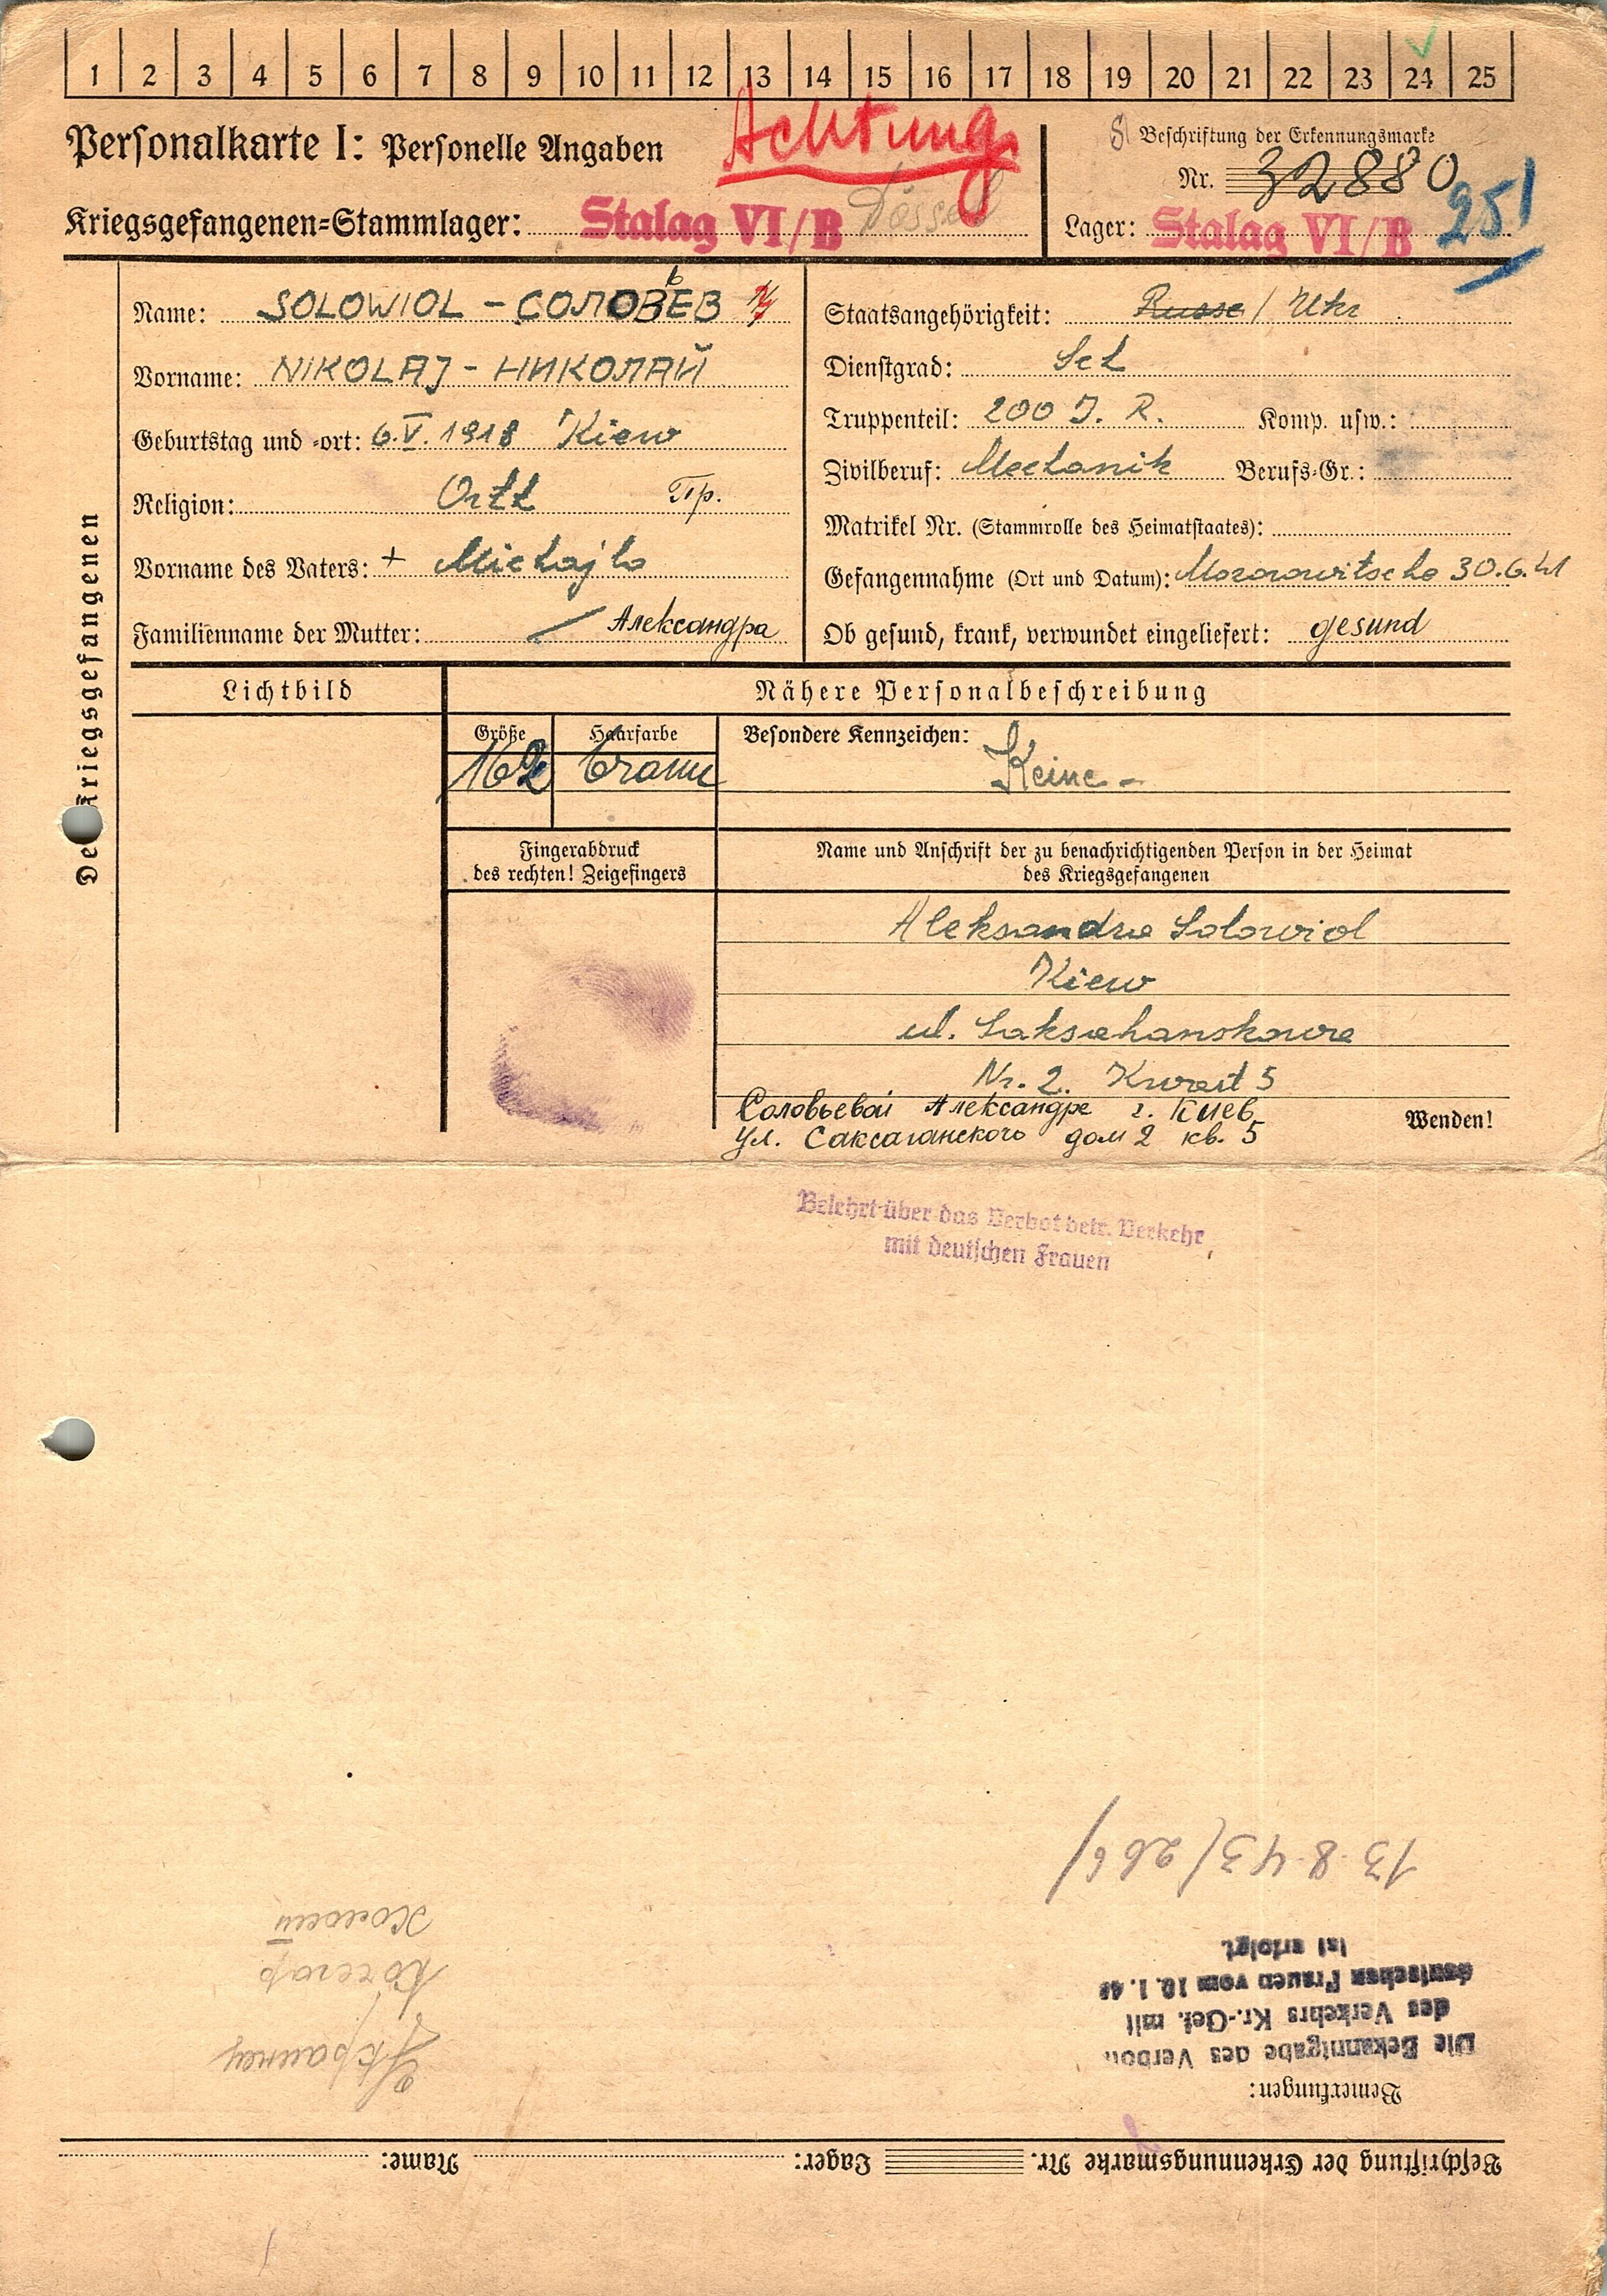 1 2 3 4 5 6 7 8 9 10 11 12 13 14 15 16 17 18 19 20 21 22 23 24 25
Personalkarte I: Personelle Angaben
Achtung
Beschriftung der Erkennungsmarke
Nr. 32880
Kriegsgefangenen=Stammlager: Stalag VI/B Dössel
Lager: Stalag VI/B 251
Des Kriegsgefangenen
Name: SOLOWIOL - СОЛОВЬЕВ
Vorname: NIKOLAJ - НИКОЛАЙ
Geburtstag und =ort: 6.V.1918 Kiew
Religion: Orth Гр.
Vorname des Vaters: + Michajlo
Familienname der Mutter: Александра
Staatsangehörigkeit: Russe / Ukr
Dienstgrad: Sol
Truppenteil: 200 J. R. Komp. usw.:
Zivilberuf: Mechanik Berufs=Gr.:
Matrikel Nr. (Stammrolle des Heimatstaates):
Gefangennahme (Ort und Datum): 30.6.41
Ob gesund, krank, verwundet eingeliefert: gesund
Lichtbild
Nähere Personalbeschreibung
Größe
Haarfarbe
Besondere Kennzeichen: Keine -
162
braun
Fingerabdruck
des rechten! Zeigefingers
Name und Anschrift der zu benachrichtigenden Person in der Heimat
des Kriegsgefangenen
Aleksandra Solowiol
Kiew
ul. Saksahanskowa
Nr. 2. Kwart 5
Соловьевой Александре г. Киев
ул. Саксаганского дом 2 кв. 5
Wenden!
Belehrt über das Verbot betr. Verkehr
mit deutschen Frauen
Beschriftung der Erkennungsmarke Nr. Lager: Name:
Bemerkungen:
Die Bekanntgabe des Verbots
des Verkehrs Kr.-Gef. mit
deutschen Frauen vom 10. 1. 40
ist erfolgt.
13.8.43/266/
Украинец
Кочегар